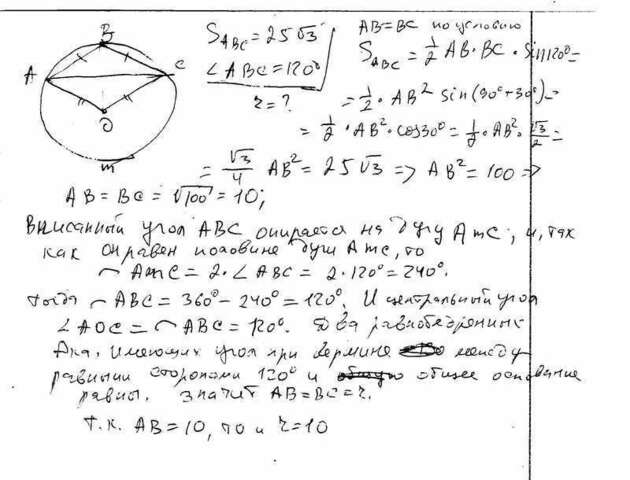 B
A
C
O
m
S_ABC = 25√3
∠ABC = 120°
r = ?
AB = BC по условию
S_ABC = 1/2 AB · BC · sin 120° =
= 1/2 · AB² sin(90° + 30°) =
= 1/2 · AB² · cos 30° = 1/2 · AB² · √3/2 =
= √3/4 AB² = 25√3 => AB² = 100 =>
AB = BC = √100 = 10;
Вписанный угол ABC опирается на дугу AmC, и, так
как он равен половине дуги AmC, то
◠AmC = 2·∠ABC = 2·120° = 240°.
Тогда ◠ABC = 360° − 240° = 120°. И центральный угол
∠AOC = ◠ABC = 120°. Два равнобедренных
Δка, имеющих угол при вершине между
равными сторонами 120° и общее основание
равны. Значит AB = BC = r.
Т.к. AB = 10, то и r = 10